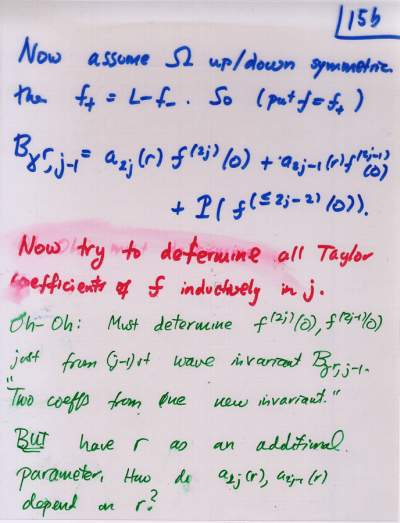 15b
Now assume Ω up/down symmetric
then f₊ = L-f₋. So (put f = f₊)
B_{γ^r, j-1} = a_{2j}(r) f^{(2j)}(0) + a_{2j-1}(r) f^{(2j-1)}(0)
+ P(f^{(≤2j-2)}(0)).
Now try to determine all Taylor
coefficients of f inductively in j.
Oh-Oh: Must determine f^{(2j)}(0), f^{(2j-1)}(0)
just from (j-1)st wave invariant B_{γ^r, j-1}.
"Two coeffs from one new invariant."
BUT have r as an additional
parameter. How do a_{2j}(r), a_{2j-1}(r)
depend on r?